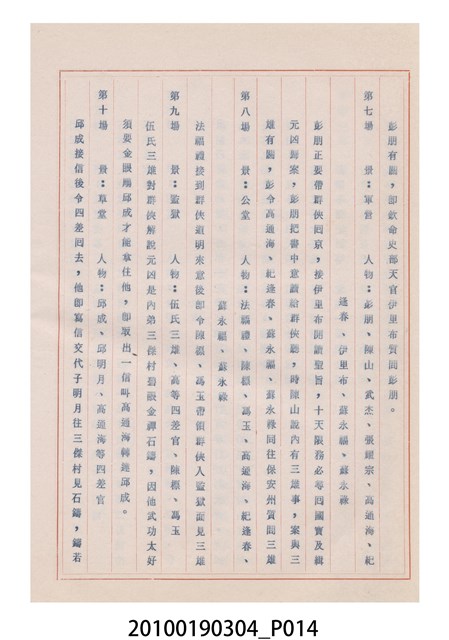 彭朋有關，卽欽命吏部天官伊里布質問彭朋。
第七場　景：軍營　人物：彭朋、陳山、武杰、張耀宗、高通海、紀
逢春、伊里布、蘇永福、蘇永祿
彭朋正要帶群俠囘京，接伊里布開讀聖旨，十天限務必尋囘國寶及緝
元凶歸案，彭朋把書中意讀給群俠聽，時陳山說內有三雄事，案與三
雄有關，彭令高通海、紀逢春、蘇永福、蘇永祿同往保安州質問三雄
第八場　景：公堂　人物：法福禮、陳櫃、馮玉、高通海、紀逢春、
蘇永福、蘇永祿
法福禮接到群俠道明來意後卽令陳櫃、馮玉帶領群俠入監獄面見三雄
第九場　景：監獄　人物：伍氏三雄、高等四差官、陳櫃、馮玉
伍氏三雄對群俠解說元凶是內弟三傑村碧眼金蟬石鑄，因他武功太好
須要金眼邱成才能拿住他，卽取出一信叫高通海轉達邱成。
第十場　景：草堂　人物：邱成、邱明月、高通海等四差官
邱成接信後令四差囘去，他卽寫信交代子明月往三傑村見石鑄，鑄若
20100190304_P014